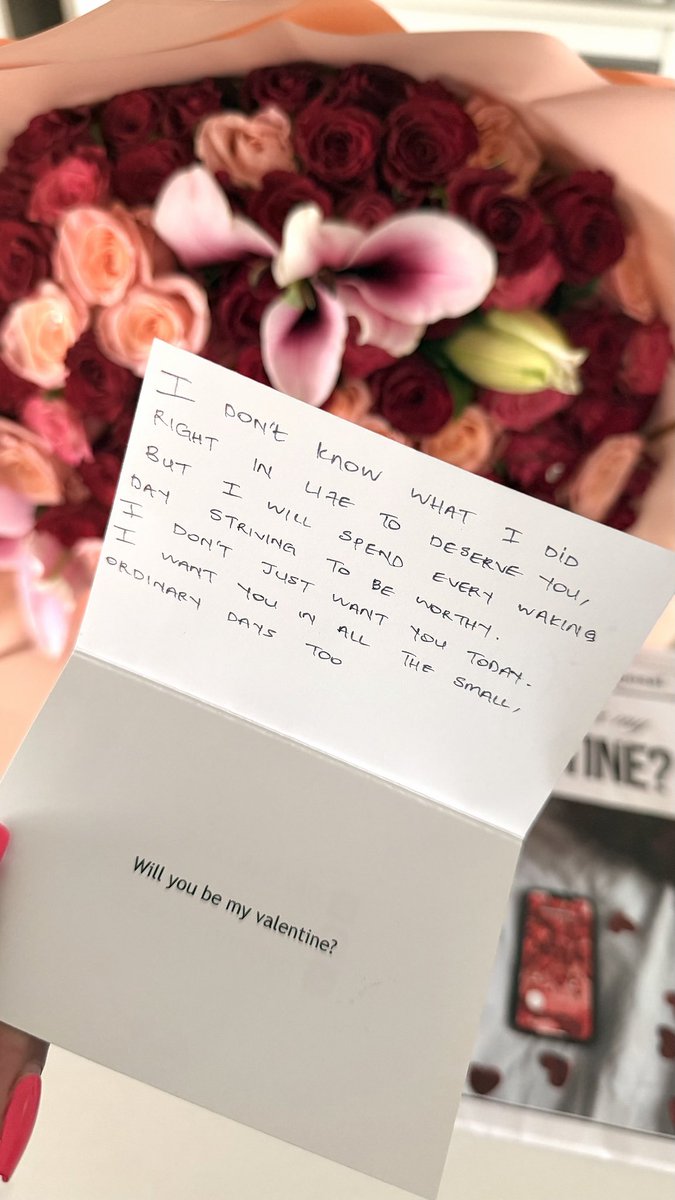 I DON'T KNOW WHAT I DID
RIGHT IN LIFE TO DESERVE YOU,
BUT I WILL SPEND EVERY WAKING
DAY STRIVING TO BE WORTHY.
I DON'T JUST WANT YOU TODAY.
I WANT YOU IN ALL THE SMALL,
ORDINARY DAYS TOO
Will you be my valentine?
my
TINE?